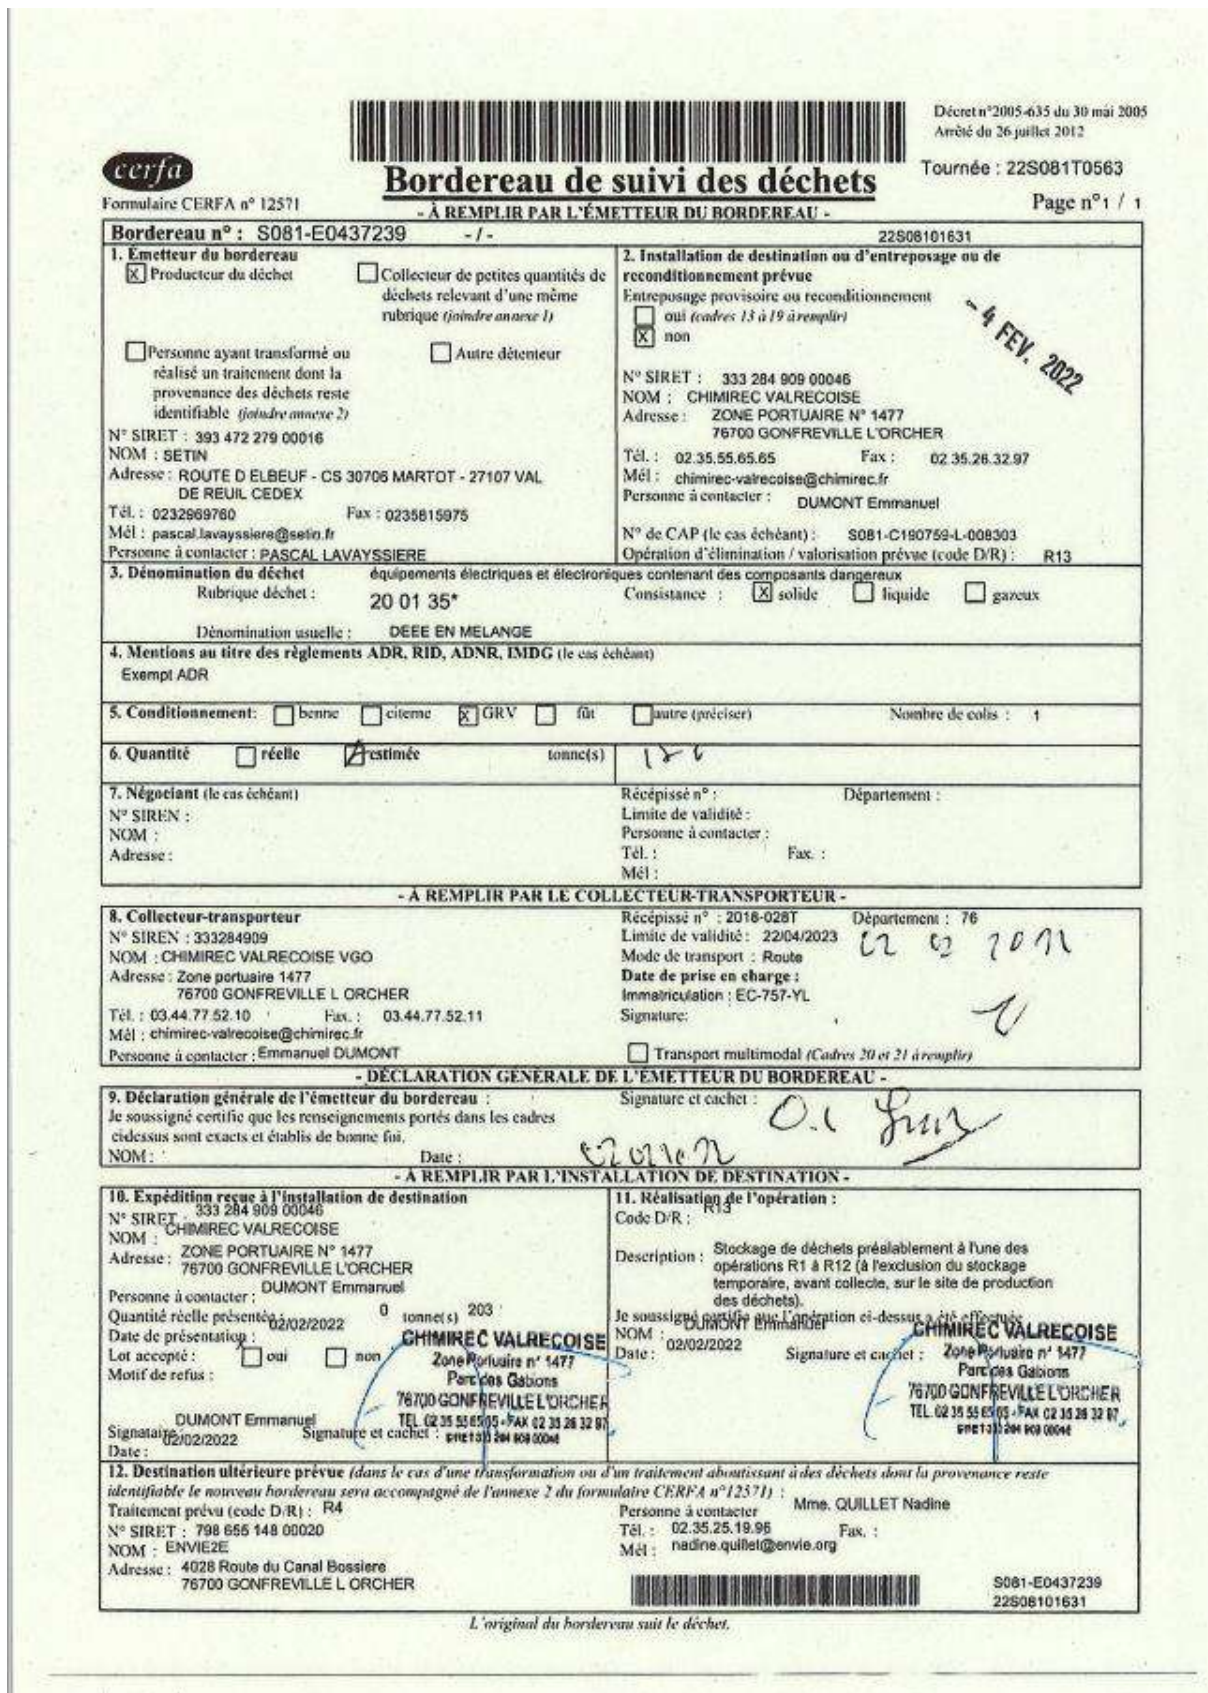 Décret n°2005-635 du 30 mai 2005
Arrêté du 26 juillet 2012
cerfa
Tournée : 22S081T0563
Bordereau de suivi des déchets
Formulaire CERFA n° 12571
Page n°1 / 1
- À REMPLIR PAR L'ÉMETTEUR DU BORDEREAU -
Bordereau n° : S081-E0437239 - / - 22S08101631
1. Émetteur du bordereau
X Producteur du déchet
Collecteur de petites quantités de
déchets relevant d'une même
rubrique (joindre annexe 1)
Personne ayant transformé ou
réalisé un traitement dont la
provenance des déchets reste
identifiable (joindre annexe 2)
Autre détenteur
N° SIRET : 393 472 279 00016
NOM : SETIN
Adresse : ROUTE D ELBEUF - CS 30706 MARTOT - 27107 VAL
DE REUIL CEDEX
Tél. : 0232969760 Fax : 0235815975
Mél : pascal.lavayssiere@setin.fr
Personne à contacter : PASCAL LAVAYSSIERE
2. Installation de destination ou d'entreposage ou de
reconditionnement prévue
Entreposage provisoire ou reconditionnement
oui (cadres 13 à 19 à remplir)
X non
- 4 FEV. 2022
N° SIRET : 333 284 909 00046
NOM : CHIMIREC VALRECOISE
Adresse : ZONE PORTUAIRE N° 1477
76700 GONFREVILLE L'ORCHER
Tél. : 02.35.55.65.65 Fax : 02.35.26.32.97
Mél : chimirec-valrecoise@chimirec.fr
Personne à contacter : DUMONT Emmanuel
N° de CAP (le cas échéant) : S081-C190759-L-008303
Opération d'élimination / valorisation prévue (code D/R) : R13
3. Dénomination du déchet équipements électriques et électroniques contenant des composants dangereux
Rubrique déchet : 20 01 35* Consistance : X solide liquide gazeux
Dénomination usuelle : DEEE EN MELANGE
4. Mentions au titre des règlements ADR, RID, ADNR, IMDG (le cas échéant)
Exempt ADR
5. Conditionnement: benne citerne X GRV fût autre (préciser) Nombre de colis : 1
6. Quantité réelle estimée tonne(s)
7. Négociant (le cas échéant)
N° SIREN :
NOM :
Adresse :
Récépissé n° : Département :
Limite de validité :
Personne à contacter :
Tél. : Fax. :
Mél :
- À REMPLIR PAR LE COLLECTEUR-TRANSPORTEUR -
8. Collecteur-transporteur
N° SIREN : 333284909
NOM : CHIMIREC VALRECOISE VGO
Adresse : Zone portuaire 1477
76700 GONFREVILLE L ORCHER
Tél. : 03.44.77.52.10 Fax. : 03.44.77.52.11
Mél : chimirec-valrecoise@chimirec.fr
Personne à contacter : Emmanuel DUMONT
Récépissé n° : 2018-028T Département : 76
Limite de validité : 22/04/2023
Mode de transport : Route
Date de prise en charge :
Immatriculation : EC-757-YL
Signature:
Transport multimodal (Cadres 20 et 21 à remplir)
- DÉCLARATION GÉNÉRALE DE L'ÉMETTEUR DU BORDEREAU -
9. Déclaration générale de l'émetteur du bordereau :
Je soussigné certifie que les renseignements portés dans les cadres
cidessus sont exacts et établis de bonne foi.
NOM : Date :
Signature et cachet :
- À REMPLIR PAR L'INSTALLATION DE DESTINATION -
10. Expédition reçue à l'installation de destination
N° SIRET : 333 284 909 00046
NOM : CHIMIREC VALRECOISE
Adresse : ZONE PORTUAIRE N° 1477
76700 GONFREVILLE L'ORCHER
Personne à contacter : DUMONT Emmanuel
Quantité réelle présentée: 0 tonne(s) 203
Date de présentation : 02/02/2022
Lot accepté : X oui non
Motif de refus :
Signataire : DUMONT Emmanuel
Date : 02/02/2022
Signature et cachet :
CHIMIREC VALRECOISE
Zone Portuaire n° 1477
Parc des Gabions
76700 GONFREVILLE L'ORCHER
TEL. 02 35 55 65 65 - FAX 02 35 26 32 97
11. Réalisation de l'opération :
Code D/R : R13
Description : Stockage de déchets préalablement à l'une des
opérations R1 à R12 (à l'exclusion du stockage
temporaire, avant collecte, sur le site de production
des déchets).
Je soussigné certifie que l'opération ci-dessus a été effectuée
NOM : DUMONT Emmanuel
Date : 02/02/2022 Signature et cachet :
CHIMIREC VALRECOISE
Zone Portuaire n° 1477
Parc des Gabions
76700 GONFREVILLE L'ORCHER
TEL. 02 35 55 65 65 - FAX 02 35 26 32 97
12. Destination ultérieure prévue (dans le cas d'une transformation ou d'un traitement aboutissant à des déchets dont la provenance reste
identifiable le nouveau bordereau sera accompagné de l'annexe 2 du formulaire CERFA n°12571) :
Traitement prévu (code D/R) : R4
N° SIRET : 798 655 148 00020
NOM : ENVIE2E
Adresse : 4028 Route du Canal Bossiere
76700 GONFREVILLE L ORCHER
Personne à contacter Mme. QUILLET Nadine
Tél. : 02.35.25.19.96 Fax. :
Mél : nadine.quillet@envie.org
S081-E0437239
22S08101631
L'original du bordereau suit le déchet.